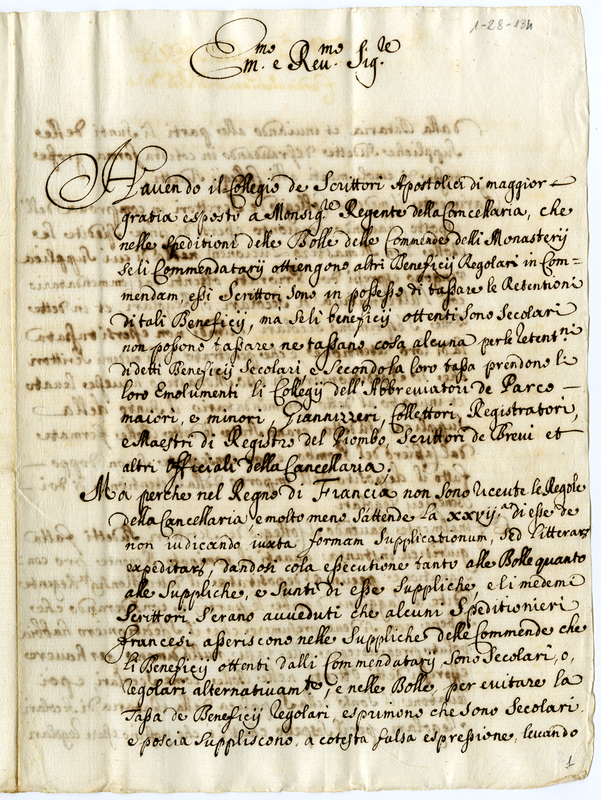 1-28-134
Em.mo e Reu.mo Sig.re
Hauendo il Collegio de Scrittori Apostolici di maggior
gratia esposto à Monsig.re Regente della Cancellaria, che
nelle speditioni delle Bolle delle Commende delli Monasterij
se li Commendatarij ottengono altri Beneficij Regolari in Com=
mendam, essi Scrittori sono in possesso di tassare le Retentioni
di tali Beneficij, ma se li beneficij ottenti sono Secolari
non possono tassare ne tassano cosa alcuna per le retent.ni
di detti Beneficij Secolari e secondo la loro tassa prendono li
loro Emolumenti li Collegij dell'Abbreviatori de Parco —
maiori, e minori, Giannizzeri, Collettori, Registratori,
e Maestri di Registro del Piombo, Scrittori de Brevi et
altri officiali della Cancellaria.
Ma perche nel Regno di Francia non sono riceute le Regole
della Cancellaria, e molto meno s'attende la xxvij.a di esse de
non iudicando iuxta formam supplicationum, sed litterarũ
expeditarũ, dandosi cola essecutione tanto alle Bolle quanto
alle suppliche, e sunti di esse suppliche, e li medemi
Scrittori s'erano avveduti che alcuni Speditionieri
francesi asseriscono nelle suppliche delle Commende che
li Beneficij ottenti dalli Commendatarij sono Secolari, o,
regolari alternativam.te, e nelle Bolle, per evitare la
Tassa de Beneficij regolari, esprimono che sono Secolari.
e poscia suppliscono, a cotesta falsa espressione, levando
1